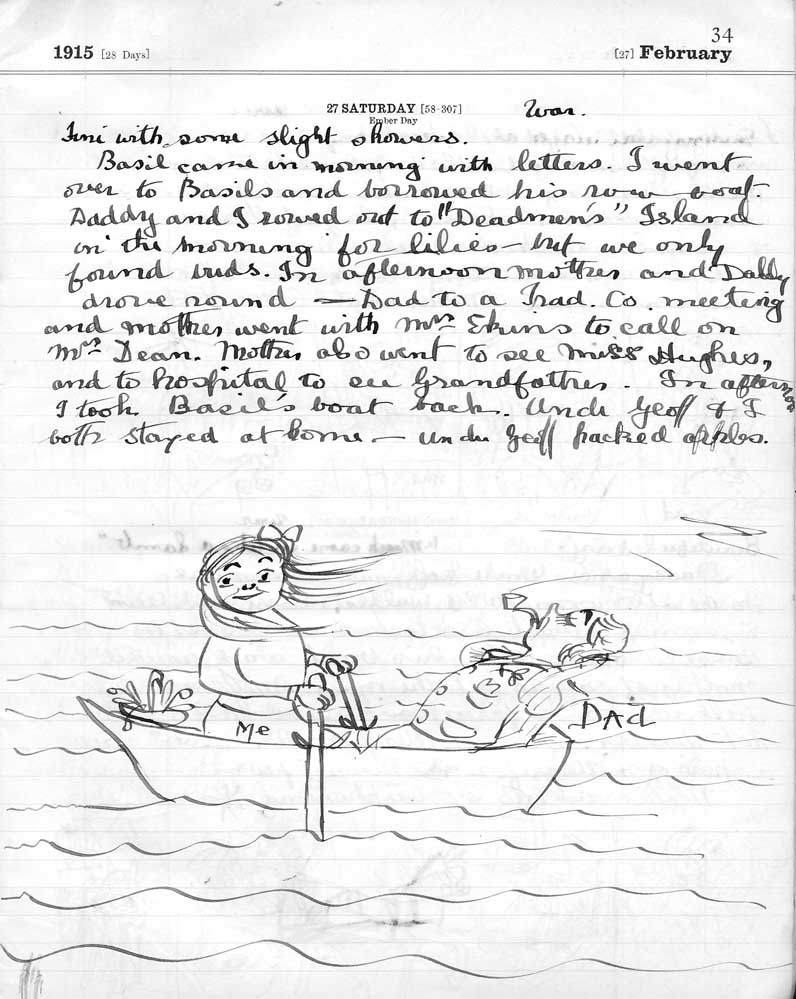 34
1915 [28 Days] [27] February
27 SATURDAY [58-307] War.
Ember Day
Fini with some slight showers.
Basil came in morning with letters. I went
over to Basils and borrowed his row boat.
Daddy and I rowed out to "Deadmen's" Island
in the morning for lilies – but we only
found buds. In afternoon mother and Daddy
drove round — Dad to a Trad. Co. meeting
and mother went with Mrs Ekins to call on
Mrs Dean. Mother also went to see Miss Hughes,
and to hospital to see Grandfather. In afternoon
I took Basil's boat back. Uncle Geoff & I
both stayed at home – Uncle Geoff packed apples.
Me
DAd